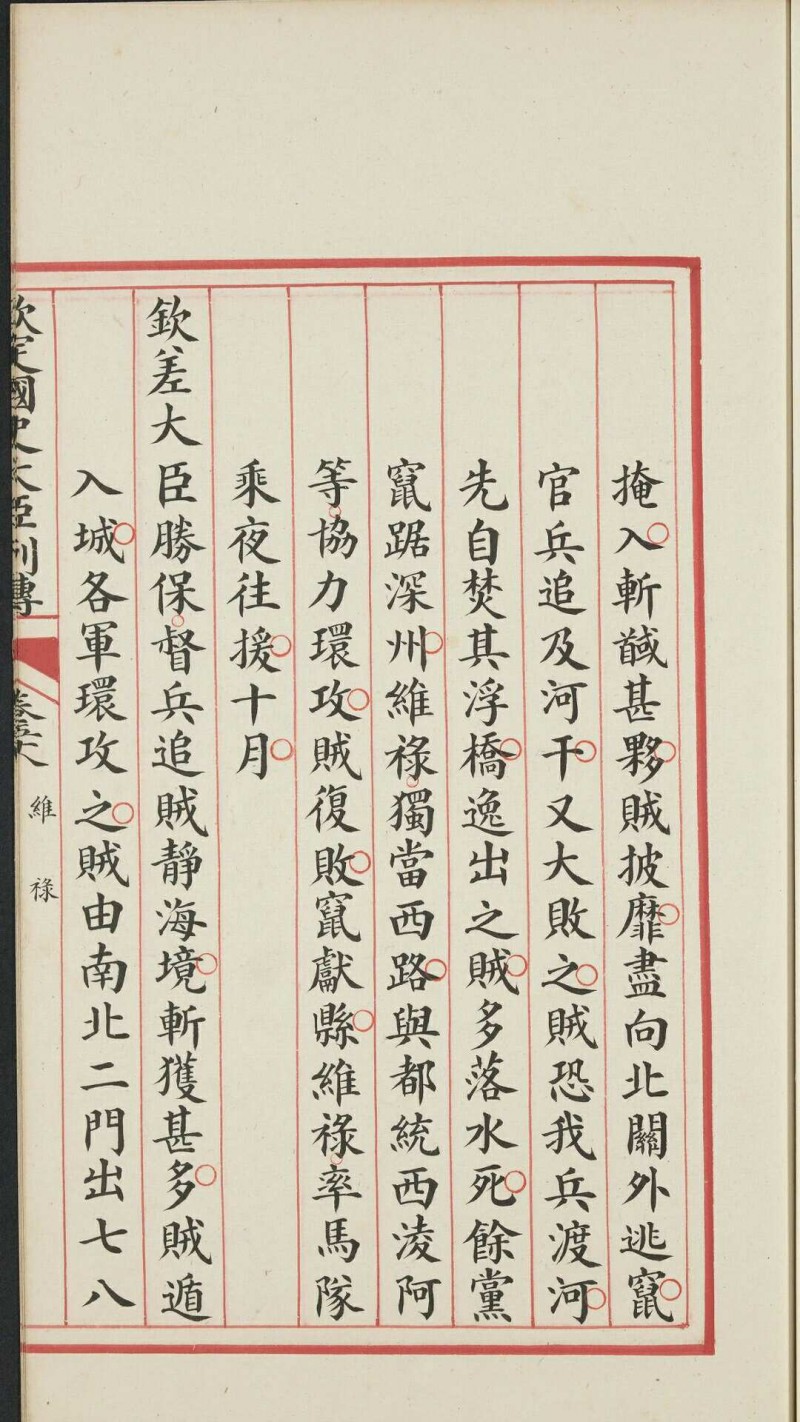 掩入斬馘甚夥賊披靡盡向北關外逃竄
官兵追及河干又大敗之賊恐我兵渡河
先自焚其浮橋逸出之賊多落水死餘黨
竄踞深州維祿獨當西路與都統西淩阿
等協力環攻賊復敗竄獻縣維祿率馬隊
乘夜往援十月
欽差大臣勝保督兵追賊靜海境斬獲甚多賊遁
入城各軍環攻之賊由南北二門出七八
欽定國史大臣列傳
維祿